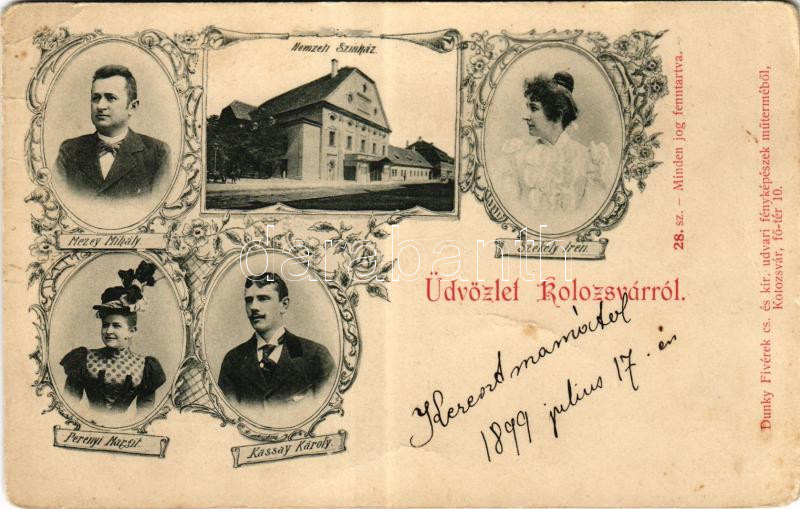 Nemzeti Színház.
Mezey Mihály
Székely Iren
Perényi Margit
Kassay Károly.
Üdvözlet Kolozsvárról.
Kereszt mamától
1899 július 17.-én
28. sz. – Minden jog fenntartva.
Dunky Fivérek cs. és kir. udvari fényképészek műterméből,
Kolozsvár, fő-tér 10.
darabanth